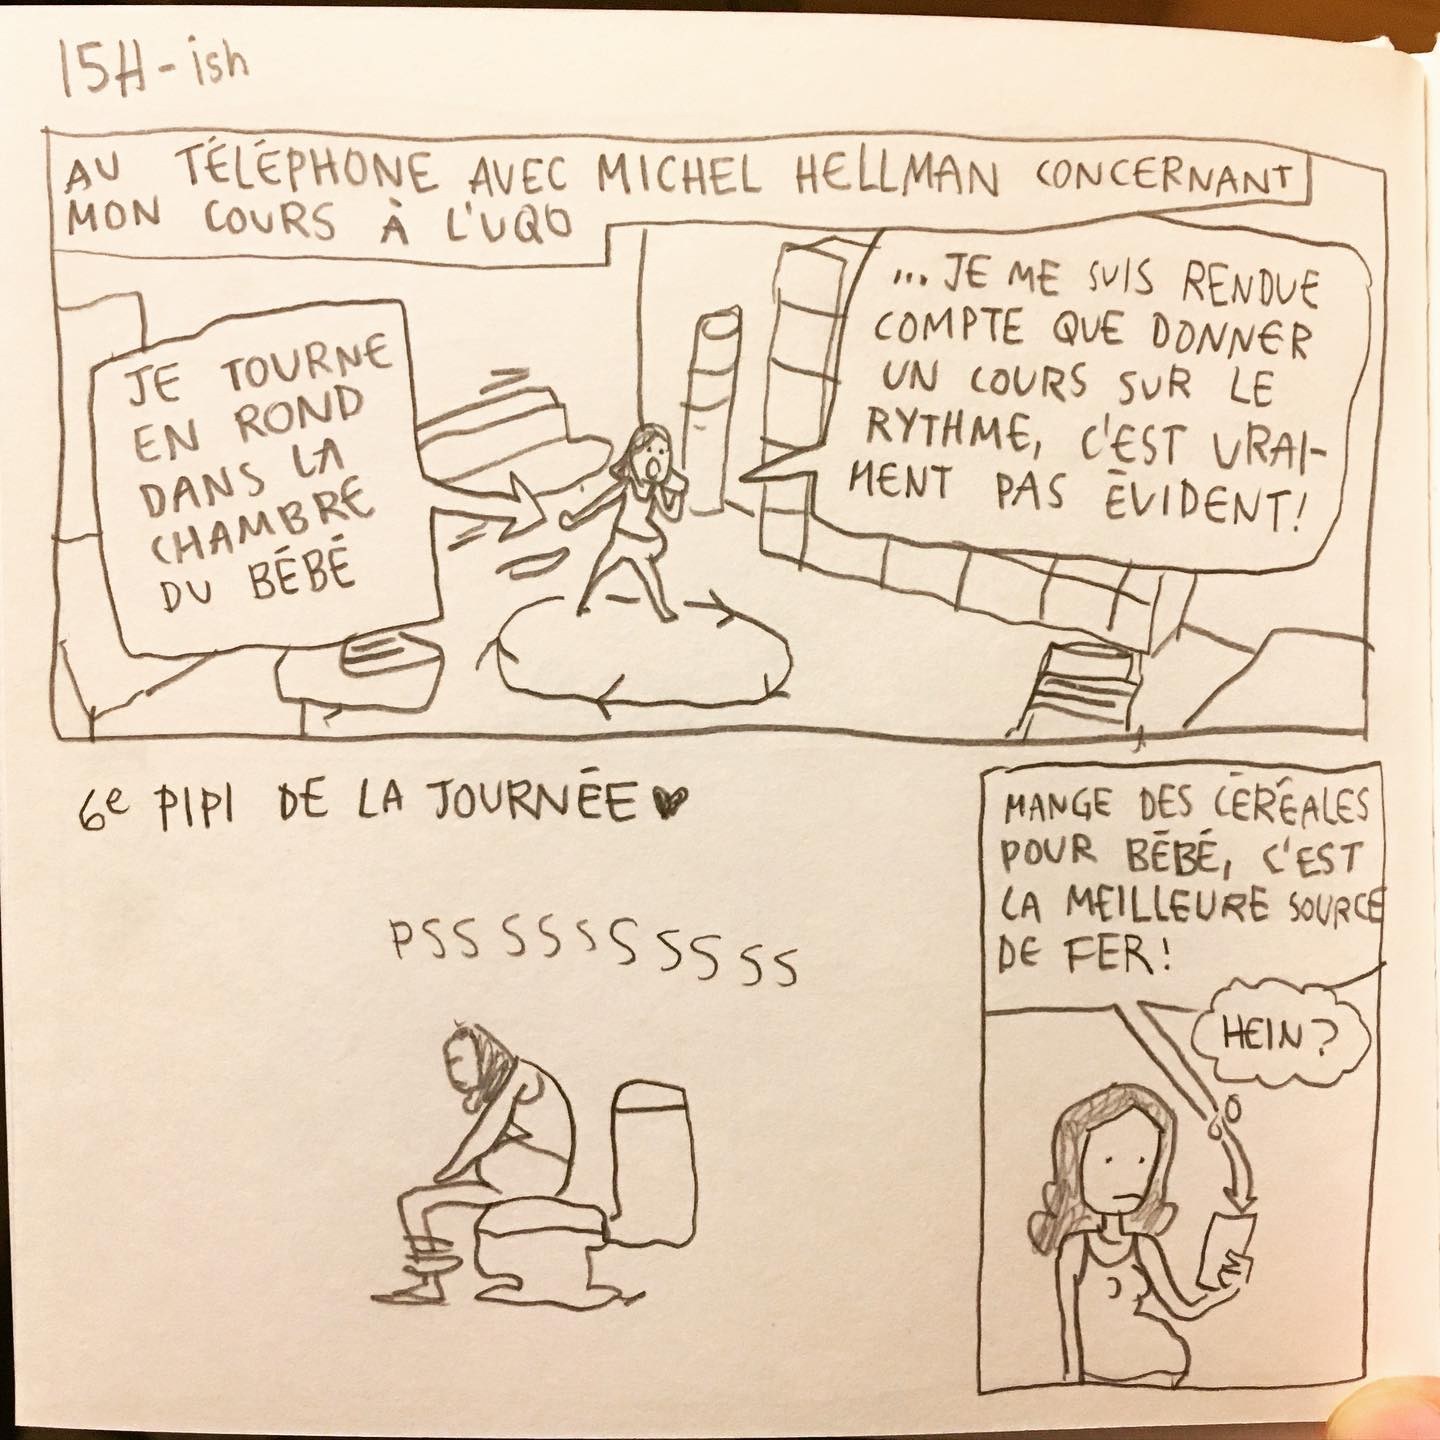 15H-ish
AU TÉLÉPHONE AVEC MICHEL HELLMAN CONCERNANT
MON COURS À L'UQO
JE TOURNE
EN ROND
DANS LA
CHAMBRE
DU BÉBÉ
...JE ME SUIS RENDUE
COMPTE QUE DONNER
UN COURS SUR LE
RYTHME, C'EST VRAI-
MENT PAS ÉVIDENT!
6e PIPI DE LA JOURNÉE ♥
PSSSSSSSSSS
MANGE DES CÉRÉALES
POUR BÉBÉ, C'EST
LA MEILLEURE SOURCE
DE FER!
HEIN?